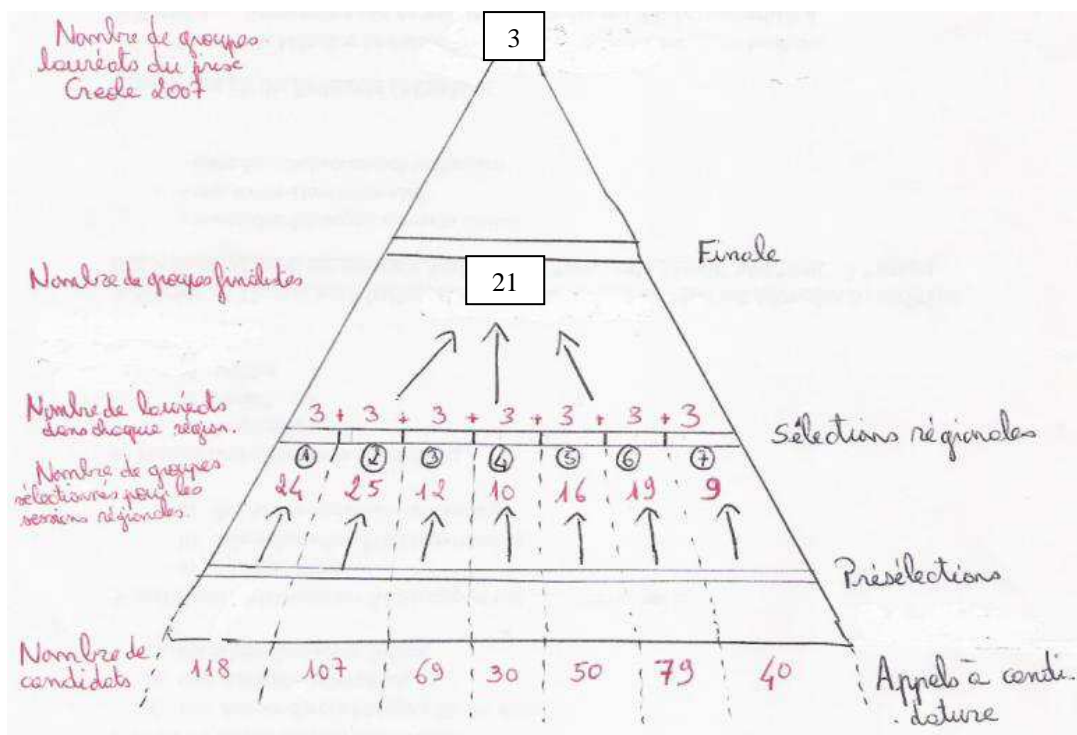 Nombre de groupes
lauréats du prix
Creole 2007
3
Finale
Nombre de groupes finalistes
21
Nombre de lauréats
dans chaque région.
3 + 3 + 3 + 3 + 3 + 3 + 3
Sélections régionales
① ② ③ ④ ⑤ ⑥ ⑦
Nombre de groupes
sélectionnés pour les
sessions régionales
24 25 12 10 16 19 9
Présélections
Nombre de
candidats
118 107 69 30 50 79 40
Appels à candi-
dature